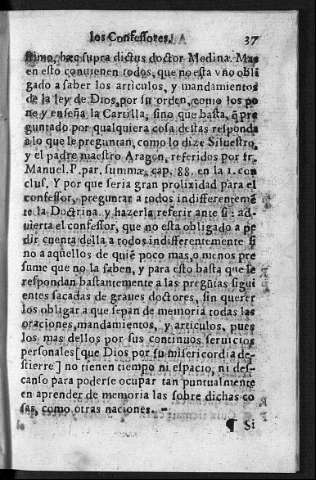 los Confessores. 37
ssimo, hæc supra dictus doctor Medina. Mas
en esto conuienen todos, que no esta vño obli
gado a saber los articulos, y mandamientos
de la ley de Dios, por su orden, como los po
ne y enseña la Cartilla, sino que basta, q̃ pre
guntado por qualquiera cosa destas responda
a lo que le preguntan, como lo dize Siluestro,
y el padre maestro Aragon, referidos por fr.
Manuel. P. par. summæ, cap. 88. en la 1. con
clus. Y por que seria gran prolixidad para el
confessor, preguntar a todos indifferentemẽ
te la Doctrina y hazerla referir ante si: ad-
uierta el confessor, que no esta obligado a pe
dir cuenta della a todos indifferentemente si
no a aquellos de quiẽ poco mas, o menos pre
sume que no la saben, y para esto basta que le
respondan bastantemente a las pregũtas sigui
entes sacadas de graues doctores, sin querer
los obligar a que sepan de memoria todas las
oraciones, mandamientos, y articulos, pues
los mas dellos por sus continuos seruicios
personales [que Dios por su misericordia de-
stierre] no tienen tiempo ni espacio, ni des-
canso para poderse ocupar tan puntualmente
en aprender de memoria las sobre dichas co
sas, como otras naciones.
¶ Si